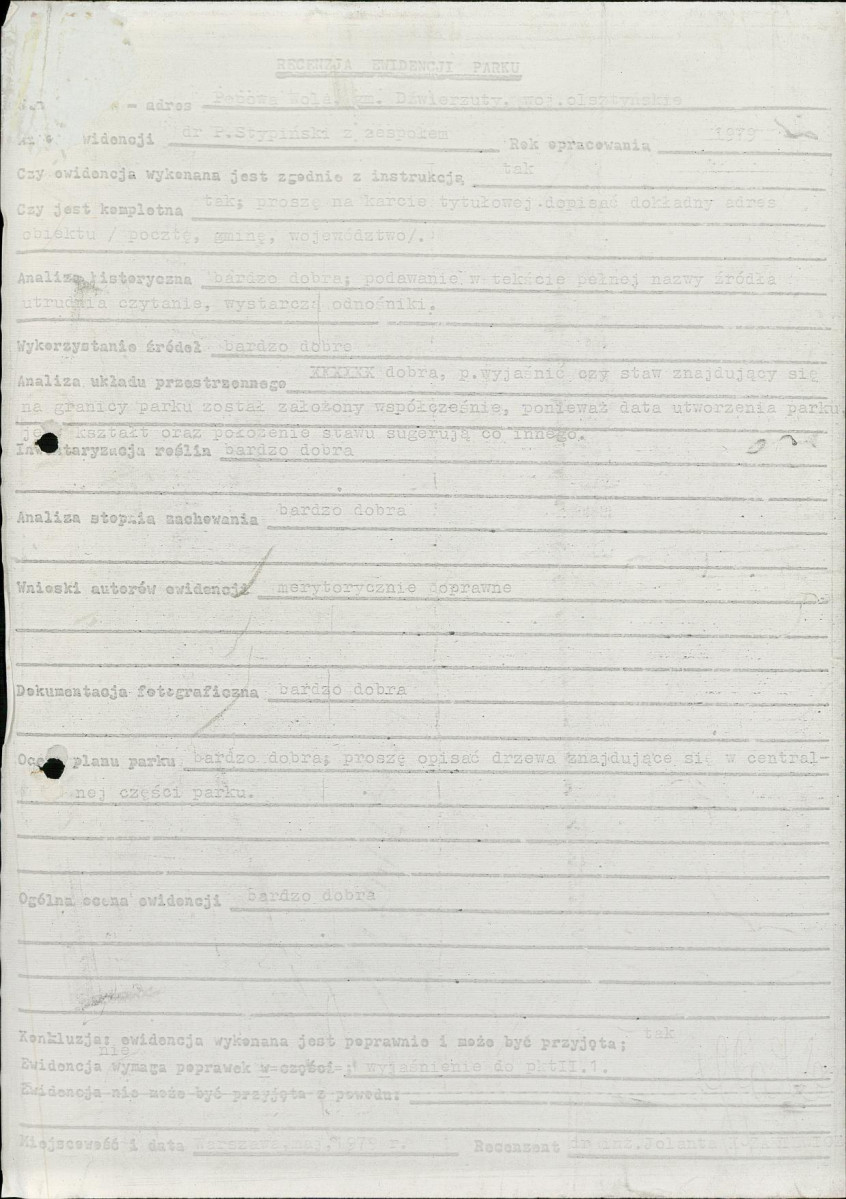 RECENZJA EWIDENCJI PARKU
- adres Robowa Wola, gm. Dźwierzuty, woj.olsztyńskie
ewidencji dr P.Stypiński z zespołem Rok opracowania 1979
Czy ewidencja wykonana jest zgodnie z instrukcją tak
Czy jest kompletna tak; proszę na karcie tytułowej dopisać dokładny adres
obiektu / pocztę, gminę, województwo/.
Analiza historyczna bardzo dobra; podawanie w tekście pełnej nazwy źródła
utrudnia czytanie, wystarczą odnośniki.
Wykorzystanie źródeł bardzo dobre
Analiza układu przestrzennego XXXXXX dobra, p.wyjaśnić czy staw znajdujący się
na granicy parku został założony współcześnie, ponieważ data utworzenia parku,
kształt oraz położenie stawu sugerują co innego.
Inwentaryzacja roślin bardzo dobra
Analiza stopnia zachowania bardzo dobra
Wnioski autorów ewidencji merytorycznie poprawne
Dokumentacja fotograficzna bardzo dobra
Ocena planu parku bardzo dobra; proszę opisać drzewa znajdujące się w central-
nej części parku.
Ogólna ocena ewidencji bardzo dobra
Konkluzja: ewidencja wykonana jest poprawnie i może być przyjęta; tak
nie
Ewidencja wymaga poprawek w części ; wyjaśnienie do pktII.1.
Ewidencja nie może być przyjęta z powodu:
Miejscowość i data Warszawa, maj, 1979 r. Recenzent dr inż. Jolanta